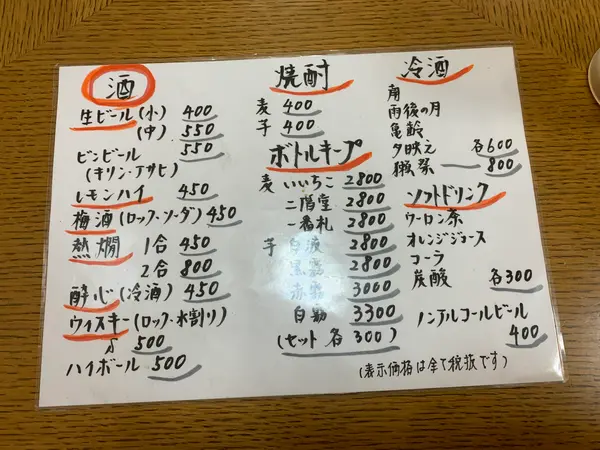 酒
生ビール(小) 400
(中) 550
ビンビール 550
(キリン・アサヒ)
レモンハイ 450
梅酒(ロック・ソーダ) 450
熱燗 1合 450
2合 800
酔心(冷酒) 450
ウィスキー(ロック・水割り)
500
ハイボール 500
焼酎
麦 400
芋 400
ボトルキープ
麦 いいちこ 2800
二階堂 2800
一番札 2800
芋 白波 2800
黒霧 2800
赤霧 3000
白勘 3300
(セット 各300)
冷酒
雨後の月
亀齢
夕映え 各600
獺祭 800
ソフトドリンク
ウーロン茶
オレンジジュース
コーラ
炭酸 各300
ノンアルコールビール
400
(表示価格は全て税抜です)